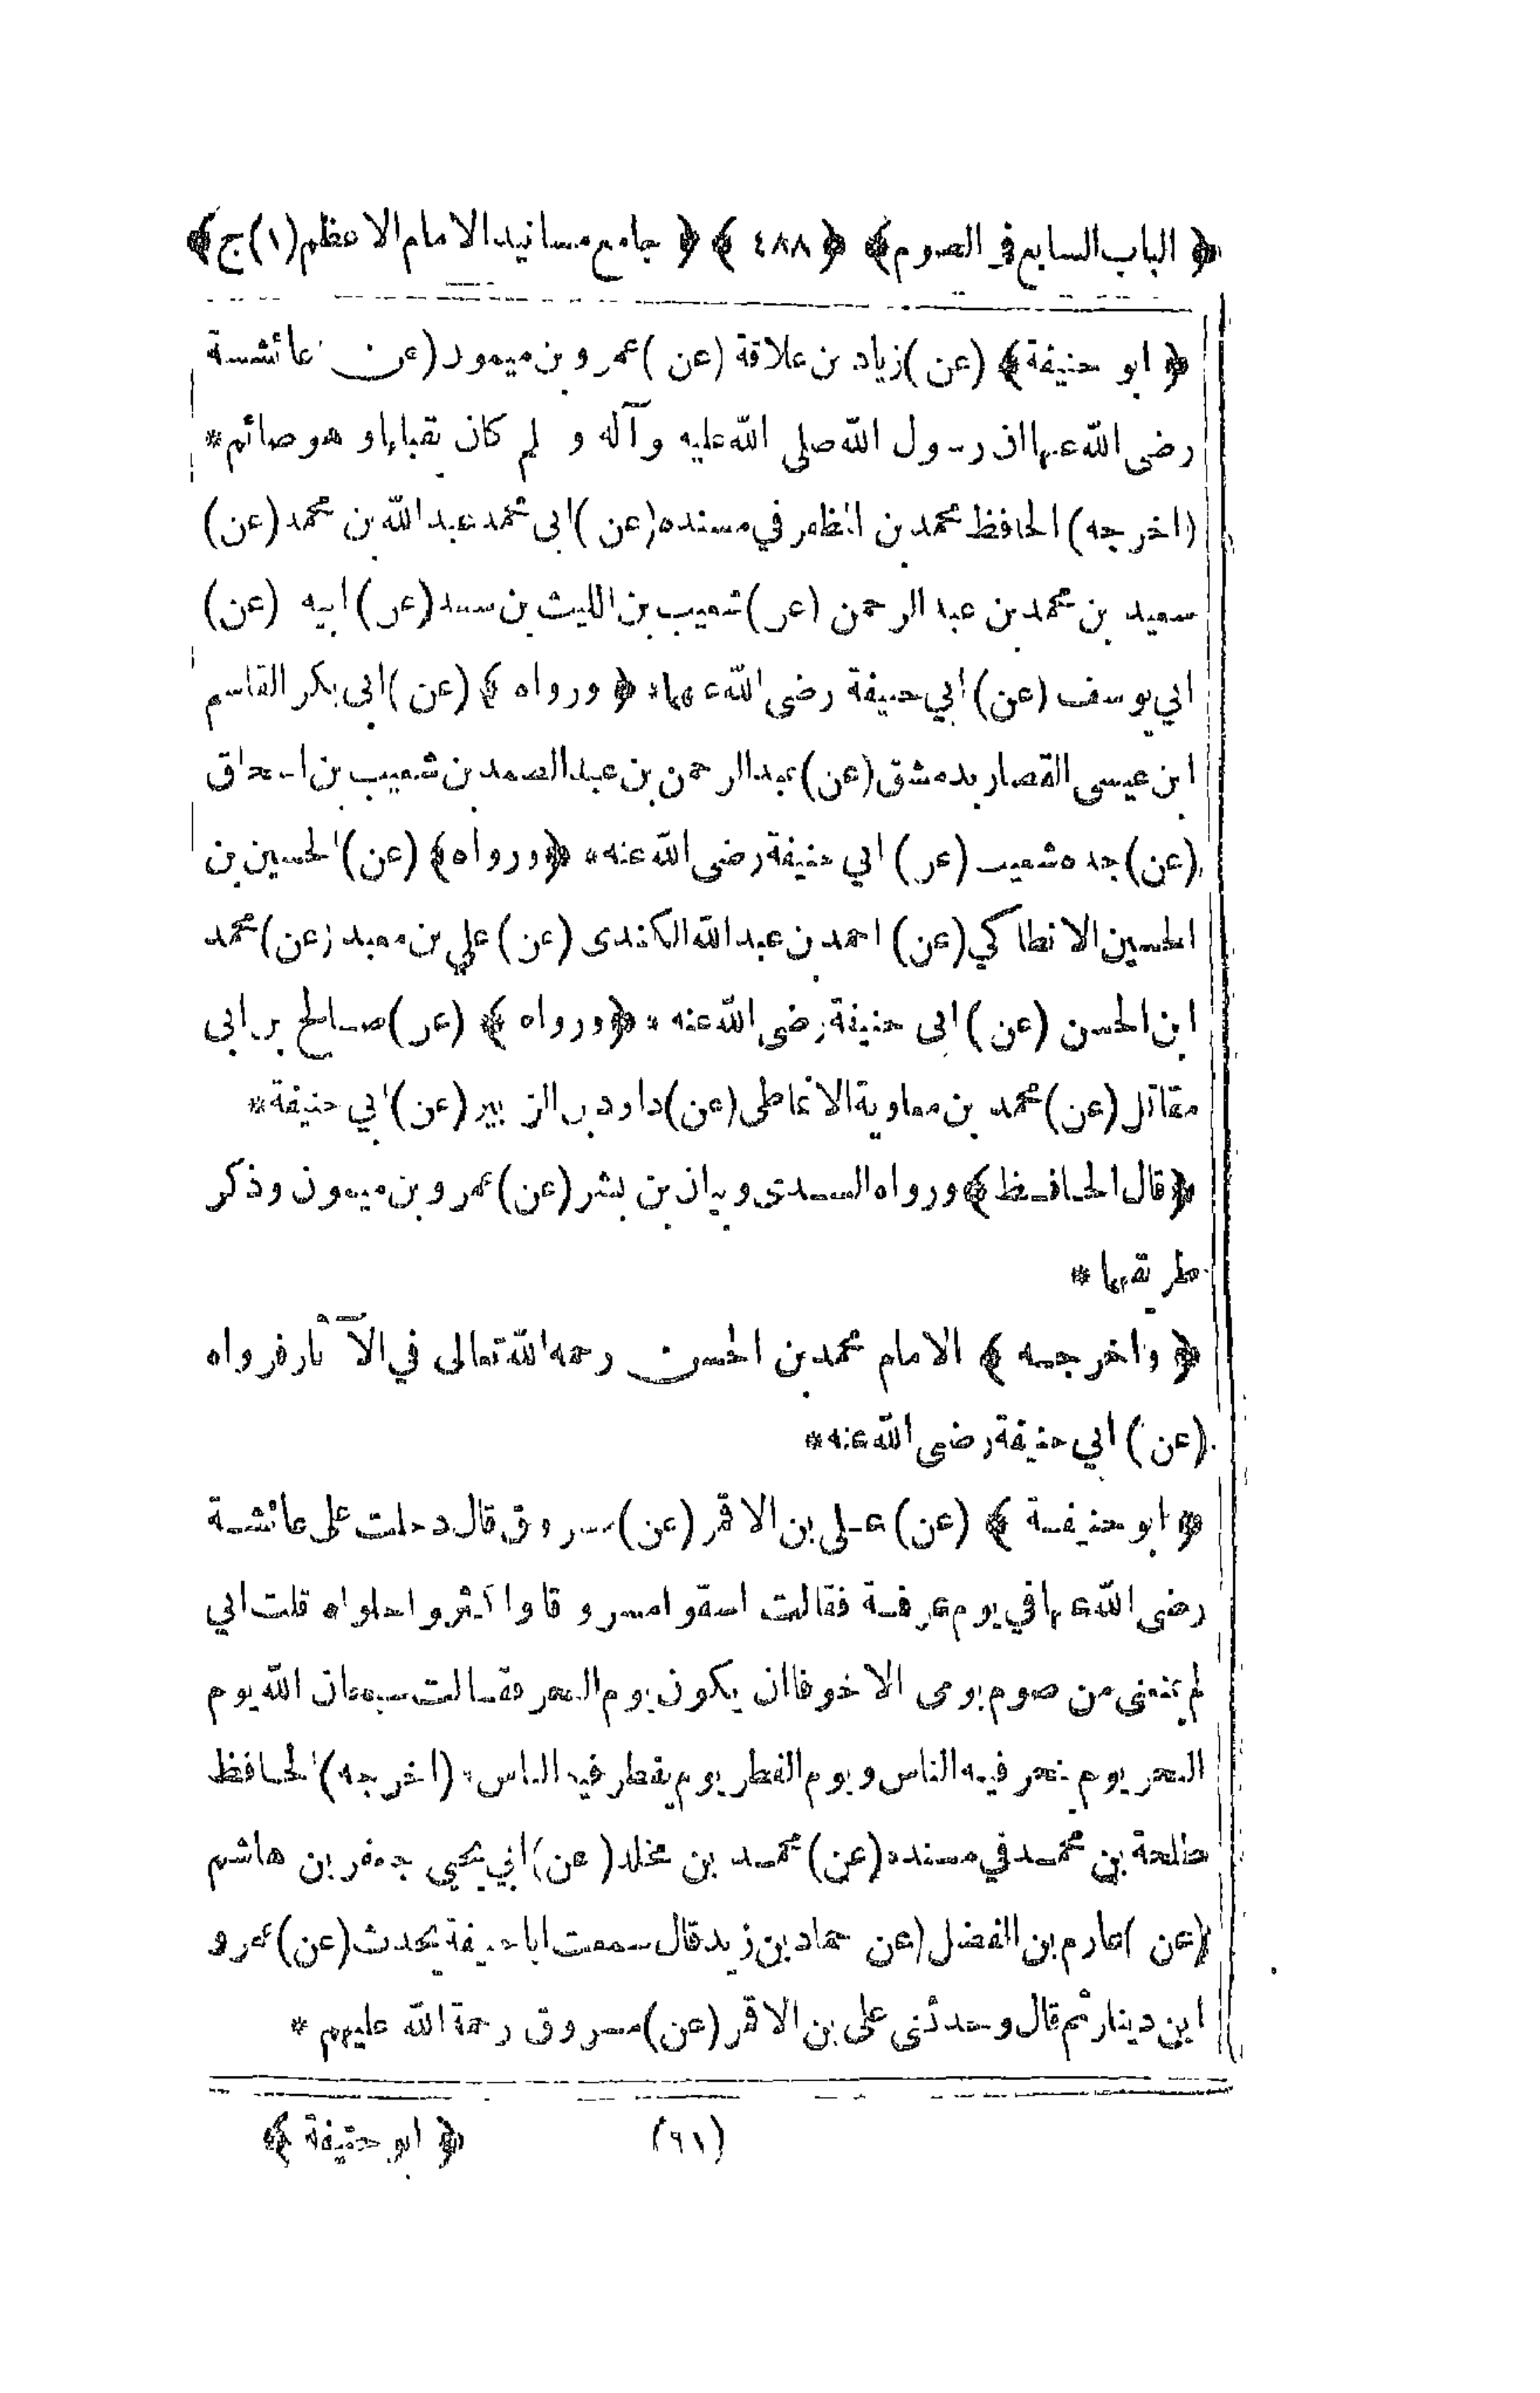 ﴿ الباب السابع في الصوم ﴾ ﴿ ٤٨٨ ﴾ ﴿ جامع مسانيد الامام الاعظم (١) ج ﴾
﴿ ابو حنيفة ﴾ (عن) زياد بن علاقة (عن) عمرو بن ميمون (عن عائشة
رضى الله عنها ان رسول الله صلى الله عليه وآله و لم كان يقبلها و هو صائم *
(اخرجه) الحافظ محمد بن المظفر في مسنده (عن) ابى محمد عبد الله بن محمد (عن)
سعيد بن محمد بن عبد الرحمن (عن) شعيب بن الليث بن سعد (عن) ابيه (عن)
ابي يوسف (عن) ابي حنيفة رضى الله عنهما * ﴿ ورواه ﴾ (عن) ابى بكر القاسم
ابن عيسى القصار بدمشق (عن) عبد الرحمن بن عبد الصمد بن شعيب بن اسحاق
(عن) جده شعيب (عن) ابي حنيفة رضى الله عنه * ﴿ ورواه ﴾ (عن) الحسين بن
الحسين الانطاكي (عن) احمد بن عبد الله الكندى (عن) علي بن معبد (عن) محمد
ابن الحسن (عن) ابى حنيفة رضى الله عنه * ﴿ ورواه ﴾ (عن) صالح بن ابى
مقاتل (عن) محمد بن معاوية الانماطى (عن) داود بن الزبير (عن) ابي حنيفة *
﴿ قال الحافظ ﴾ ورواه السدى وبيان بن بشر (عن) عمرو بن ميمون وذكر
طريقهما *
﴿ واخرجه ﴾ الامام محمد بن الحسن رحمه الله تعالى في الآثار فرواه
(عن) ابي حنيفة رضى الله عنه *
﴿ ابو حنيفة ﴾ (عن) على بن الاقمر (عن) مسروق قال دخلت على عائشة
رضى الله عنها في يوم عرفة فقالت اسقوا مسروقا واكثروا حلواه قلت انى
لم يمنعنى من صوم يومى الا خوفا ان يكون يوم النحر فقالت سبحان الله يوم
النحر يوم ينحر فيه الناس و يوم الفطر يوم يفطر فيه الناس * (اخرجه) الحافظ
طلحة بن محمد في مسنده (عن) محمد بن مخلد (عن) ابي يحيى جعفر بن هاشم
(عن) عارم بن الفضل (عن حماد بن زيد قال سمعت ابا حنيفة يحدث (عن) عمرو
ابن دينار ثم قال وحدثنى على بن الاقمر (عن) مسروق رحمة الله عليهم *
(٦١) ﴿ ابو حنيفة ﴾